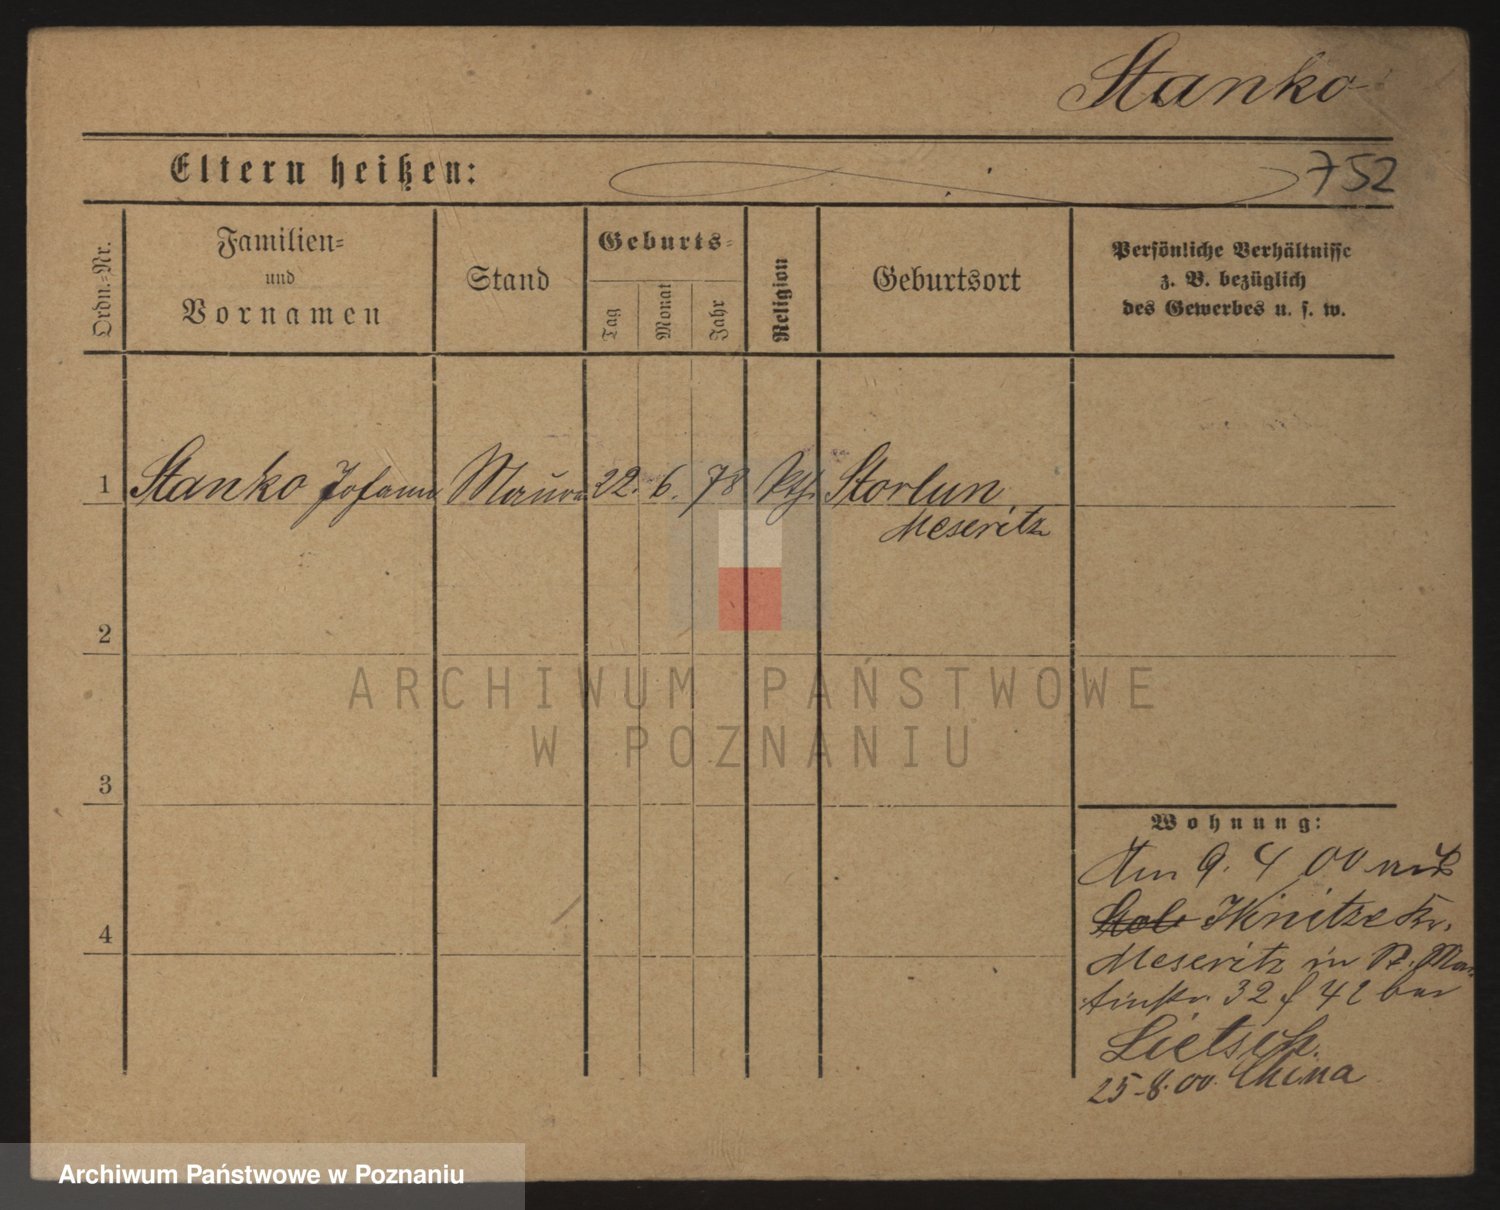 Stanko
Eltern heißen:
752
Ordn.=Nr.
Familien=
und
Vornamen
Stand
Geburts=
Tag
Monat
Jahr
Religion
Geburtsort
Persönliche Verhältnisse
z. B. bezüglich
des Gewerbes u. s. w.
1 Stanko Johann Maurer 22. 6. 78 kth. Storlun
Meseritz
2
ARCHIWUM PAŃSTWOWE
W POZNANIU
3
4
Wohnung:
Am 9. 4 00 aus
Kr.
Meseritz in St. Mar
tinstr. 32 42 bei
Lietsch.
25-8.00. China
Archiwum Państwowe w Poznaniu